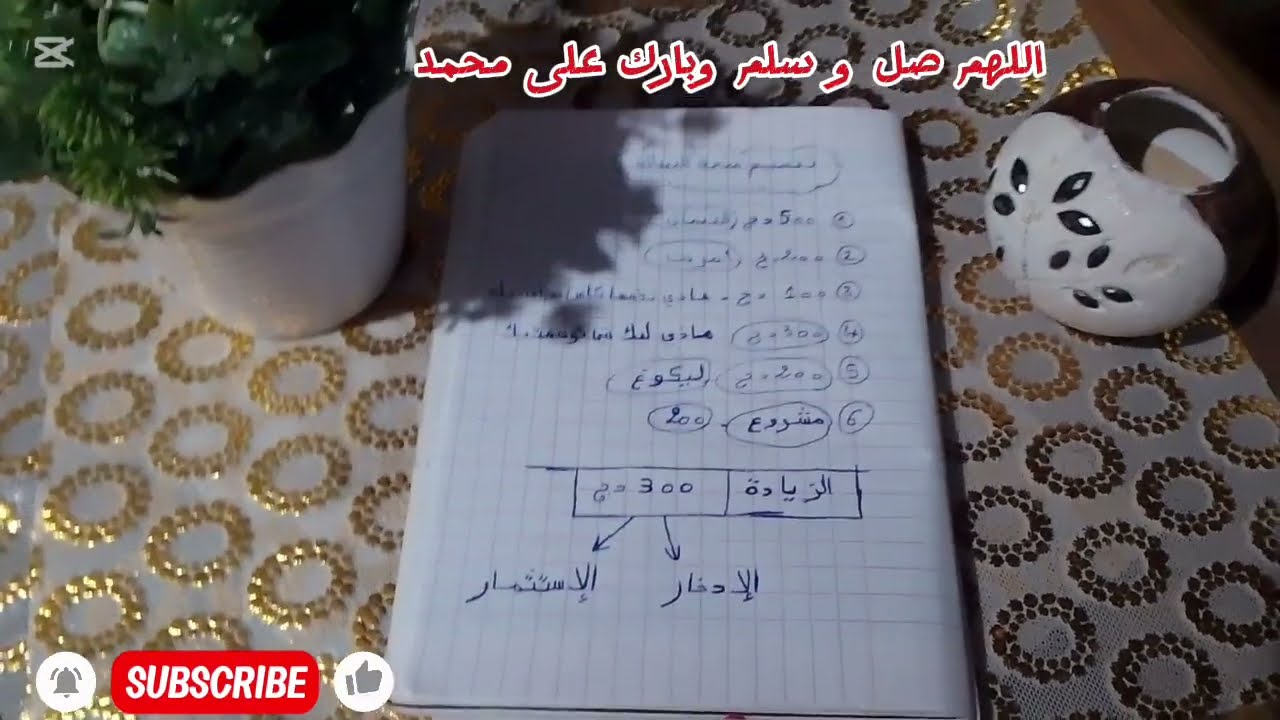 اللهم صل و سلم وبارك على محمد
تقسيم منحة البطالة
① 500 دج
② 200 دج
③ 100 دج . هادي
④ 300 دج هادي ليك
⑤ 200 دج
⑥ مشروع . 200
الزيادة 300 دج
الإدخار الإستثمار
SUBSCRIBE